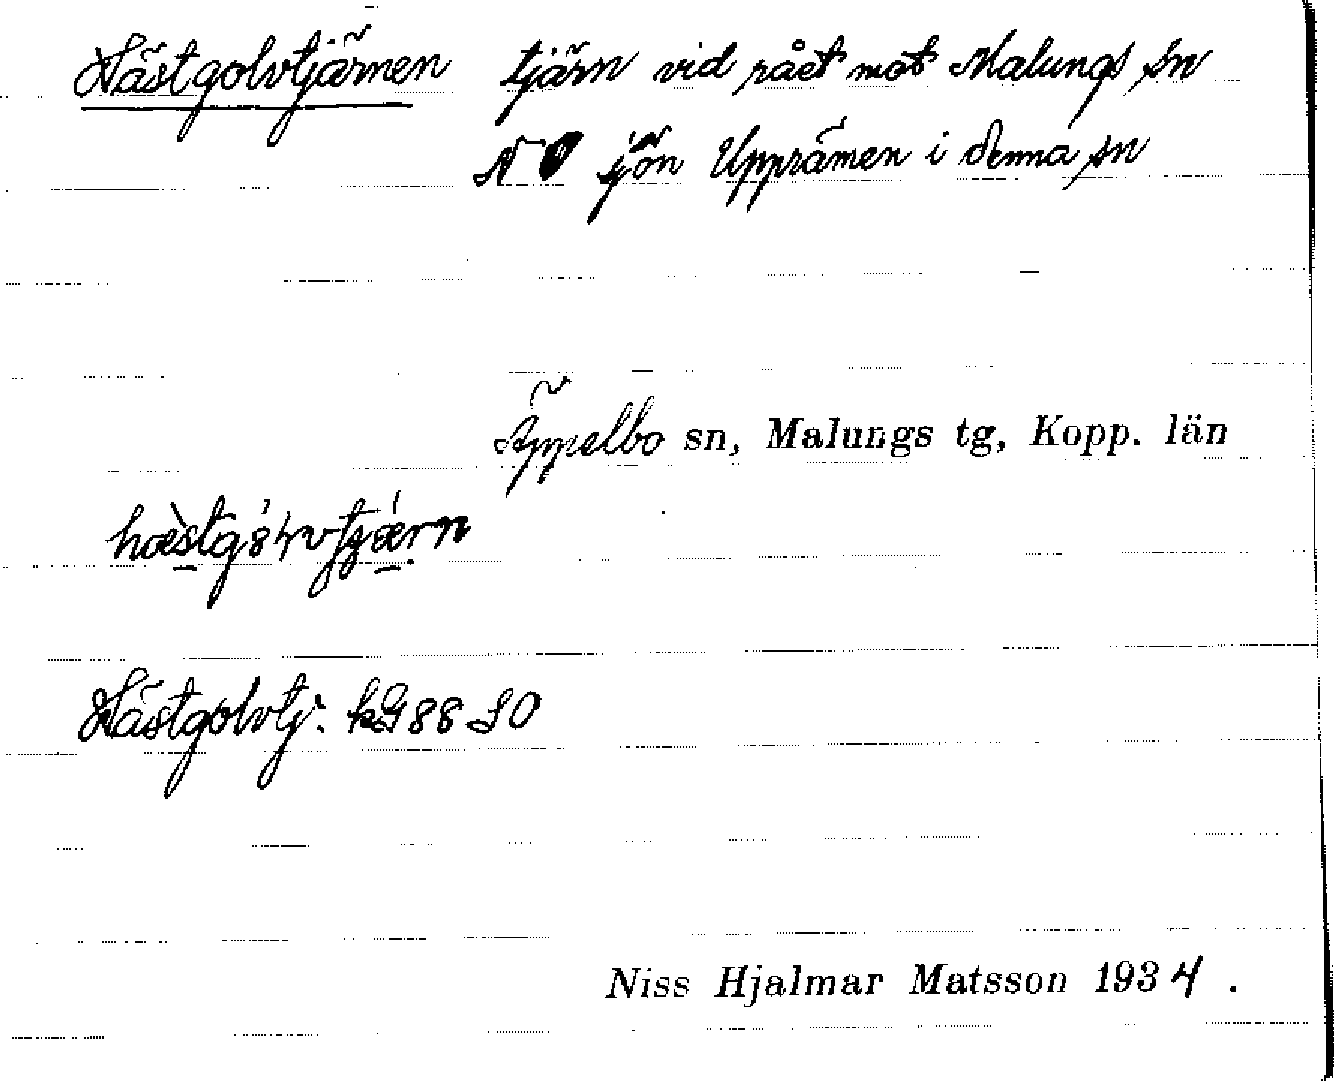 Hästgolvtjärnen tjärn vid rået mot Malungs sn
NO från Uppråmen i denna sn
Äppelbo sn, Malungs tg, Kopp. län
Hästgolvtj. kG 88 SO
Niss Hjalmar Matsson 1934.